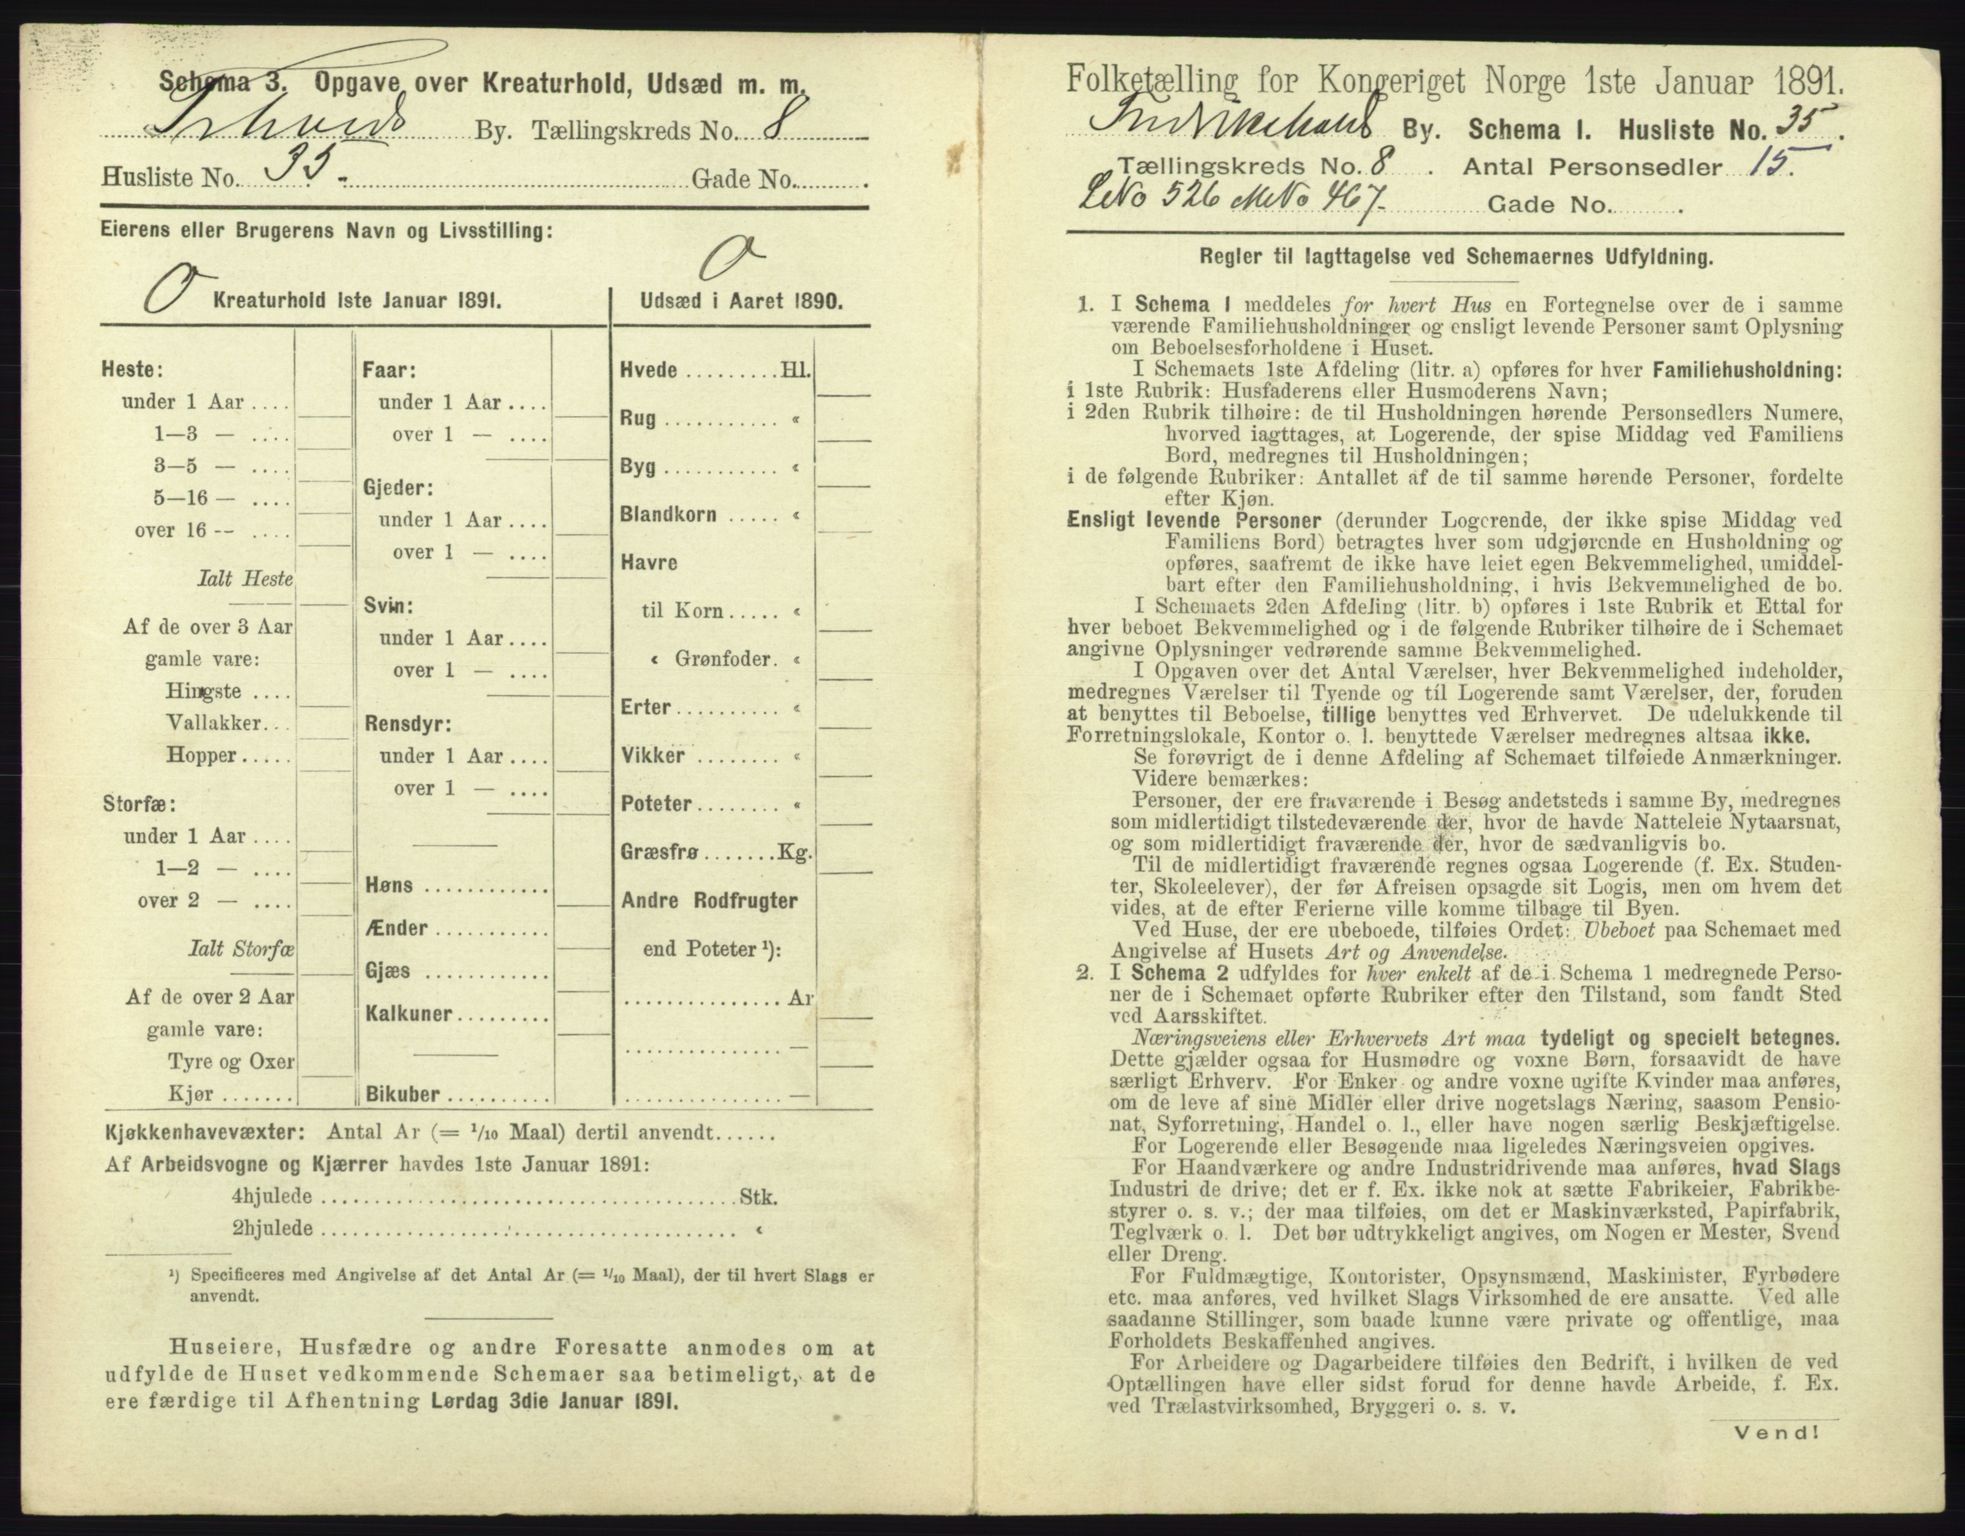 Schema 3. Opgave over Kreaturhold, Udsæd m. m.
By. Tællingskreds No. 8
Husliste No. 35. Gade No. .
Eierens eller Brugerens Navn og Livsstilling:
O
O Kreaturhold 1ste Januar 1891.
Heste:
under 1 Aar ....
1—3 — ....
3—5 — ....
5—16 — ....
over 16 -- ....
Ialt Heste
Af de over 3 Aar
gamle vare:
Hingste ....
Vallakker...
Hopper.....
Storfæ:
under 1 Aar ....
1—2 — ....
over 2 — ....
Ialt Storfæ
Af de over 2 Aar
gamle vare:
Tyre og Oxer
Kjør .......
Faar:
under 1 Aar ....
over 1 — ....
Gjeder:
under 1 Aar ....
over 1 — ....
Svin:
under 1 Aar ....
over 1 — ....
Rensdyr:
under 1 Aar ....
over 1 — ....
Høns ............
Ænder ...........
Gjæs ............
Kalkuner.........
Bikuber ..........
Udsæd i Aaret 1890.
Hvede .........Hl.
Rug ........... «
Byg ........... «
Blandkorn ..... «
Havre
til Korn ..... «
« Grønfoder. «
Erter.......... «
Vikker ........ «
Poteter........ «
Græsfrø.......Kg.
Andre Rodfrugter
end Poteter ¹):
............... Ar
............... —
............... —
Kjøkkenhavevæxter: Antal Ar (= 1/10 Maal) dertil anvendt......
Af Arbeidsvogne og Kjærrer havdes 1ste Januar 1891:
4hjulede ......................................Stk.
2hjulede ...................................... «
¹) Specificeres med Angivelse af det Antal Ar (= 1/10 Maal), der til hvert Slags er
anvendt.
Huseiere, Husfædre og andre Foresatte anmodes om at
udfylde de Huset vedkommende Schemaer saa betimeligt, at de
ere færdige til Afhentning Lørdag 3die Januar 1891.
Folketælling for Kongeriget Norge 1ste Januar 1891.
Fredrikshald By. Schema I. Husliste No. 35.
Tællingskreds No. 8 . Antal Personsedler 15.
LNo 526 MNo 467. Gade No. .
Regler til Iagttagelse ved Schemaernes Udfyldning.
1. I Schema 1 meddeles for hvert Hus en Fortegnelse over de i samme
værende Familiehusholdninger og ensligt levende Personer samt Oplysning
om Beboelsesforholdene i Huset.
I Schemaets 1ste Afdeling (litr. a) opføres for hver Familiehusholdning:
i 1ste Rubrik: Husfaderens eller Husmoderens Navn;
i 2den Rubrik tilhøire: de til Husholdningen hørende Personsedlers Numere,
hvorved iagttages, at Logerende, der spise Middag ved Familiens
Bord, medregnes til Husholdningen;
i de følgende Rubriker: Antallet af de til samme hørende Personer, fordelte
efter Kjøn.
Ensligt levende Personer (derunder Logerende, der ikke spise Middag ved
Familiens Bord) betragtes hver som udgjørende en Husholdning og
opføres, saafremt de ikke have leiet egen Bekvemmelighed, umiddel-
bart efter den Familiehusholdning, i hvis Bekvemmelighed de bo.
I Schemaets 2den Afdeling (litr. b) opføres i 1ste Rubrik et Ettal for
hver beboet Bekvemmelighed og i de følgende Rubriker tilhøire de i Schemaet
angivne Oplysninger vedrørende samme Bekvemmelighed.
I Opgaven over det Antal Værelser, hver Bekvemmelighed indeholder,
medregnes Værelser til Tyende og til Logerende samt Værelser, der, foruden
at benyttes til Beboelse, tillige benyttes ved Erhvervet. De udelukkende til
Forretningslokale, Kontor o. l. benyttede Værelser medregnes altsaa ikke.
Se forøvrigt de i denne Afdeling af Schemaet tilføiede Anmærkninger.
Videre bemærkes:
Personer, der ere fraværende i Besøg andetsteds i samme By, medregnes
som midlertidigt tilstedeværende der, hvor de havde Natteleie Nytaarsnat,
og som midlertidigt fraværende der, hvor de sædvanligvis bo.
Til de midlertidigt fraværende regnes ogsaa Logerende (f. Ex. Studen-
ter, Skoleelever), der før Afreisen opsagde sit Logis, men om hvem det
vides, at de efter Ferierne ville komme tilbage til Byen.
Ved Huse, der ere ubeboede, tilføies Ordet: Ubeboet paa Schemaet med
Angivelse af Husets Art og Anvendelse.
2. I Schema 2 udfyldes for hver enkelt af de i Schema 1 medregnede Perso-
ner de i Schemaet opførte Rubriker efter den Tilstand, som fandt Sted
ved Aarsskiftet.
Næringsveiens eller Erhvervets Art maa tydeligt og specielt betegnes.
Dette gjælder ogsaa for Husmødre og voxne Børn, forsaavidt de have
særligt Erhverv. For Enker og andre voxne ugifte Kvinder maa anføres,
om de leve af sine Midler eller drive nogetslags Næring, saasom Pensio-
nat, Syforretning, Handel o. l., eller have nogen særlig Beskjæftigelse.
For Logerende eller Besøgende maa ligeledes Næringsveien opgives.
For Haandværkere og andre Industridrivende maa anføres, hvad Slags
Industri de drive; det er f. Ex. ikke nok at sætte Fabrikeier, Fabrikbe-
styrer o. s. v.; der maa tilføies, om det er Maskinværksted, Papirfabrik,
Teglværk o. l. Det bør udtrykkeligt angives, om Nogen er Mester, Svend
eller Dreng.
For Fuldmægtige, Kontorister, Opsynsmænd, Maskinister, Fyrbødere
etc. maa anføres, ved hvilket Slags Virksomhed de ere ansatte. Ved alle
saadanne Stillinger, som baade kunne være private og offentlige, maa
Forholdets Beskaffenhed angives.
For Arbeidere og Dagarbeidere tilføies den Bedrift, i hvilken de ved
Optællingen have eller sidst forud for denne havde Arbeide, f. Ex.
ved Trælastvirksomhed, Bryggeri o. s. v.
Vend!